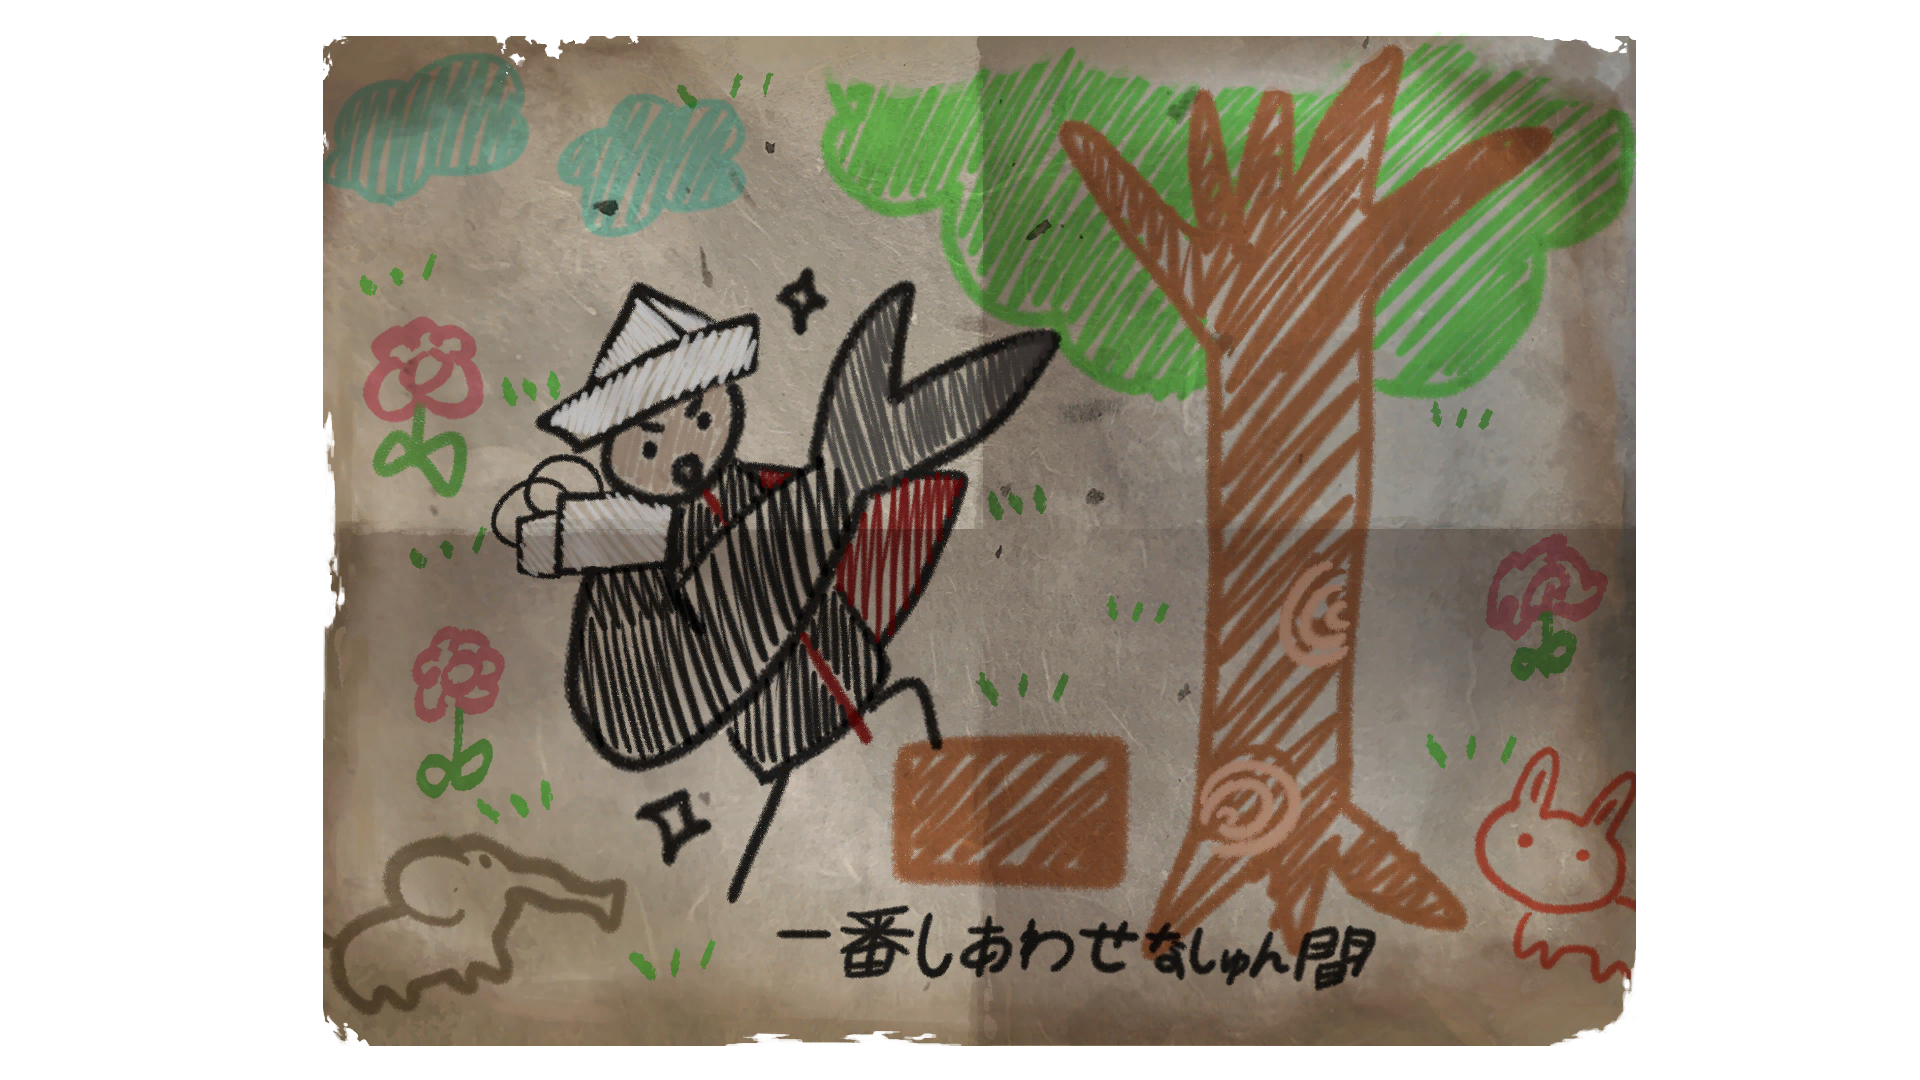 一番しあわせなしゅん間